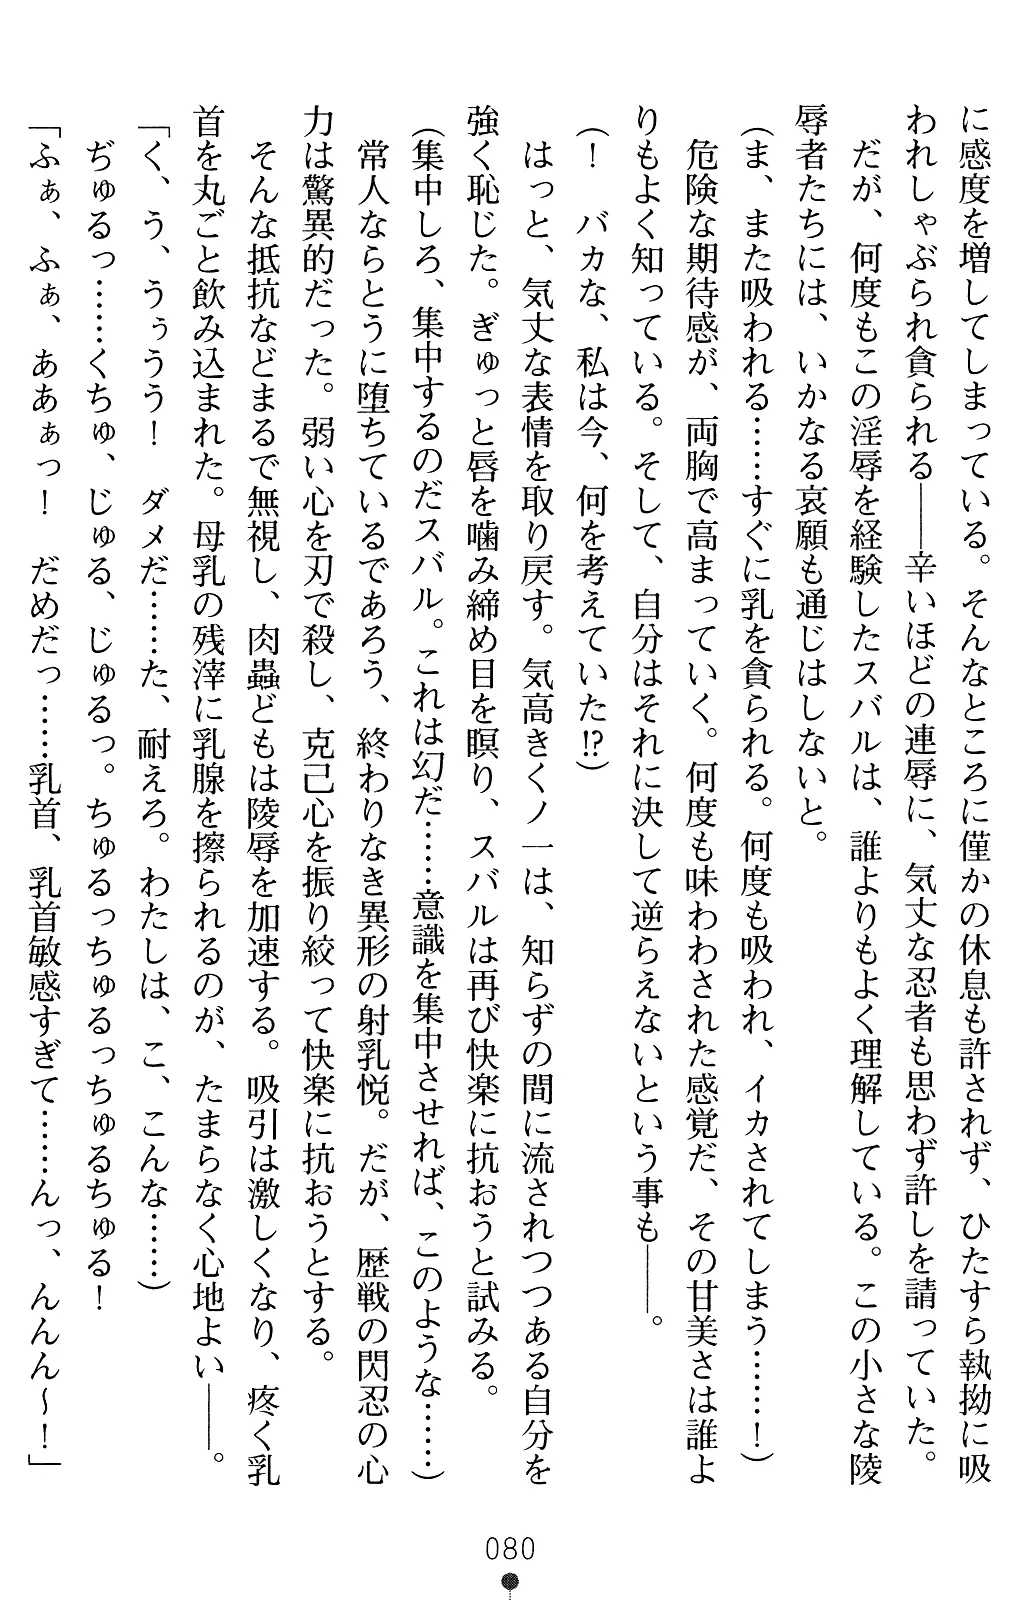 に感度を増してしまっている。そんなところに僅かの休息も許されず、ひたすら執拗に吸
われしゃぶられ貪られる――辛いほどの連辱に、気丈な忍者も思わず許しを請っていた。
だが、何度もこの淫辱を経験したスバルは、誰よりもよく理解している。この小さな陵
辱者たちには、いかなる哀願も通じはしないと。
(ま、また吸われる……すぐに乳を貪られる。何度も吸われ、イカされてしまう……！)
危険な期待感が、両胸で高まっていく。何度も味わわされた感覚だ、その甘美さは誰よ
りもよく知っている。そして、自分はそれに決して逆らえないという事も――。
(！　バカな、私は今、何を考えていた!?)
はっと、気丈な表情を取り戻す。気高きくノ一は、知らずの間に流されつつある自分を
強く恥じた。ぎゅっと唇を噛み締め目を瞑り、スバルは再び快楽に抗おうと試みる。
(集中しろ、集中するのだスバル。これは幻だ……意識を集中させれば、このような……)
常人ならとうに堕ちているであろう、終わりなき異形の射乳悦。だが、歴戦の閃忍の心
力は驚異的だった。弱い心を刃で殺し、克己心を振り絞って快楽に抗おうとする。
そんな抵抗などまるで無視し、肉蟲どもは陵辱を加速する。吸引は激しくなり、疼く乳
首を丸ごと飲み込まれた。母乳の残滓に乳腺を擦られるのが、たまらなく心地よい――。
「く、う、うぅうう！　ダメだ……た、耐えろ。わたしは、こ、こんな……)
ぢゅるっ……くちゅ、じゅる、じゅるっ。ちゅるっちゅるっちゅるちゅる！
「ふぁ、ふぁ、ああぁっ！　だめだっ……乳首、乳首敏感すぎて……んっ、んんん～！」
080